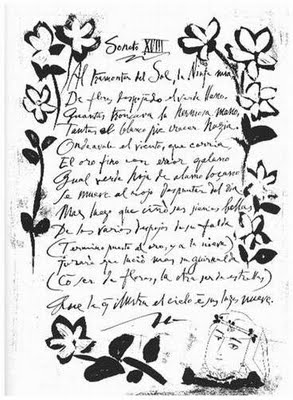 Soneto XVIII
Al tramontar del Sol, la Ninfa mia,
De flores despojado el verde llano,
Quantas troncava la hermosa mano,
Tantas el blanco pie crecer hazia.
Ondeavale el viento, que corria,
El oro fino con error galano
Qual verde hoja de alamo loçano
Se mueve al rojo despuntar del dia.
Mas luego que ciño sus sienes bellas
De los varios despojos de su falda
(Termino puesto al oro, y a la nieve)
Juraré que lució mas su guirnalda
(Co ser de flores, la otra ser de estrellas)
Que la q ilustra el cielo e sus luzes nueve.